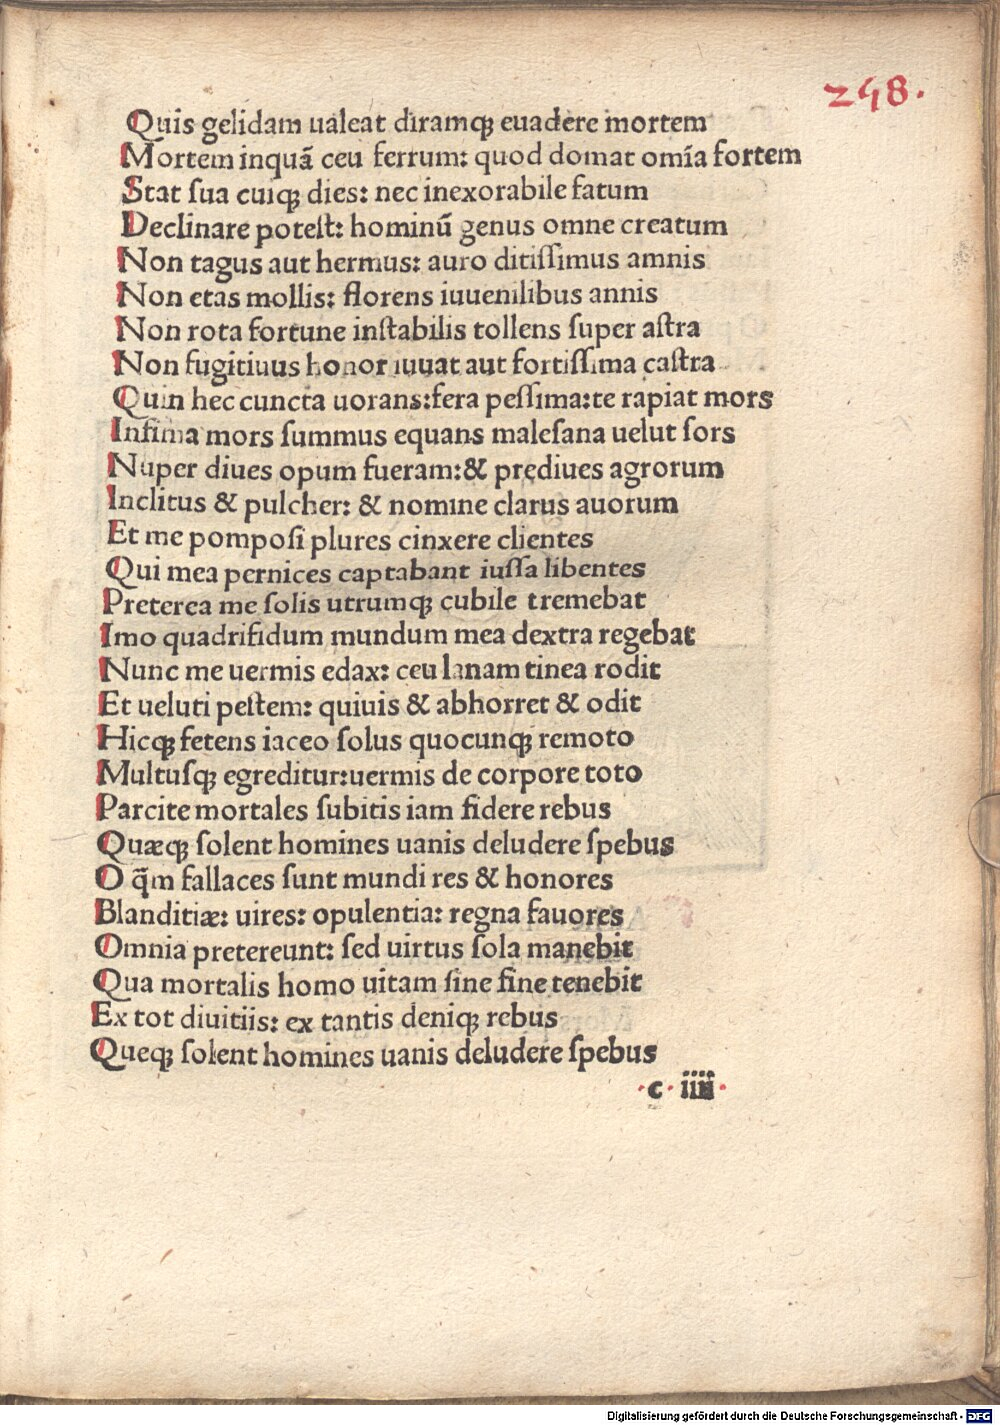 248.
Quis gelidam ualeat diramqꝫ euadere mortem
Mortem inquā ceu ferrum: quod domat omīa fortem
Stat ſua cuiqꝫ dies: nec inexorabile fatum
Declinare poteſt: hominū genus omne creatum
Non tagus aut hermus: auro ditiſſimus amnis
Non etas mollis: florens iuuenilibus annis
Non rota fortune inſtabilis tollens ſuper aſtra
Non fugitiuus honor iuuat aut fortiſſima caſtra
Quin hec cuncta uorans:fera peſſima:te rapiat mors
Infima mors ſummus equans maleſana uelut ſors
Nuper diues opum fueram:& prędiues agrorum
Inclitus & pulcher: & nomine clarus auorum
Et me pompoſi plures cinxere clientes
Qui mea pernices captabant iuſſa libentes
Preterea me ſolis utrumqꝫ cubile tremebat
Imo quadrifidum mundum mea dextra regebat
Nunc me uermis edax: ceu lanam tinea rodit
Et ueluti peſtem: quiuis & abhorret & odit
Hicqꝫ fetens iaceo ſolus quocunqꝫ remoto
Multuſqꝫ egreditur:uermis de corpore toto
Parcite mortales ſubitis iam fidere rebus
Quæqꝫ ſolent homines uanis deludere ſpebus
O q̄m fallaces ſunt mundi res & honores
Blanditiæ: uires: opulentia: regna fauores
Omnia pretereunt: ſed uirtus ſola manebit
Qua mortalis homo uitam ſine fine tenebit
Ex tot diuitiis: ex tantis deniqꝫ rebus
Queqꝫ ſolent homines uanis deludere ſpebus
·c· iiii·
Digitalisierung gefördert durch die Deutsche Forschungsgemeinschaft - DFG